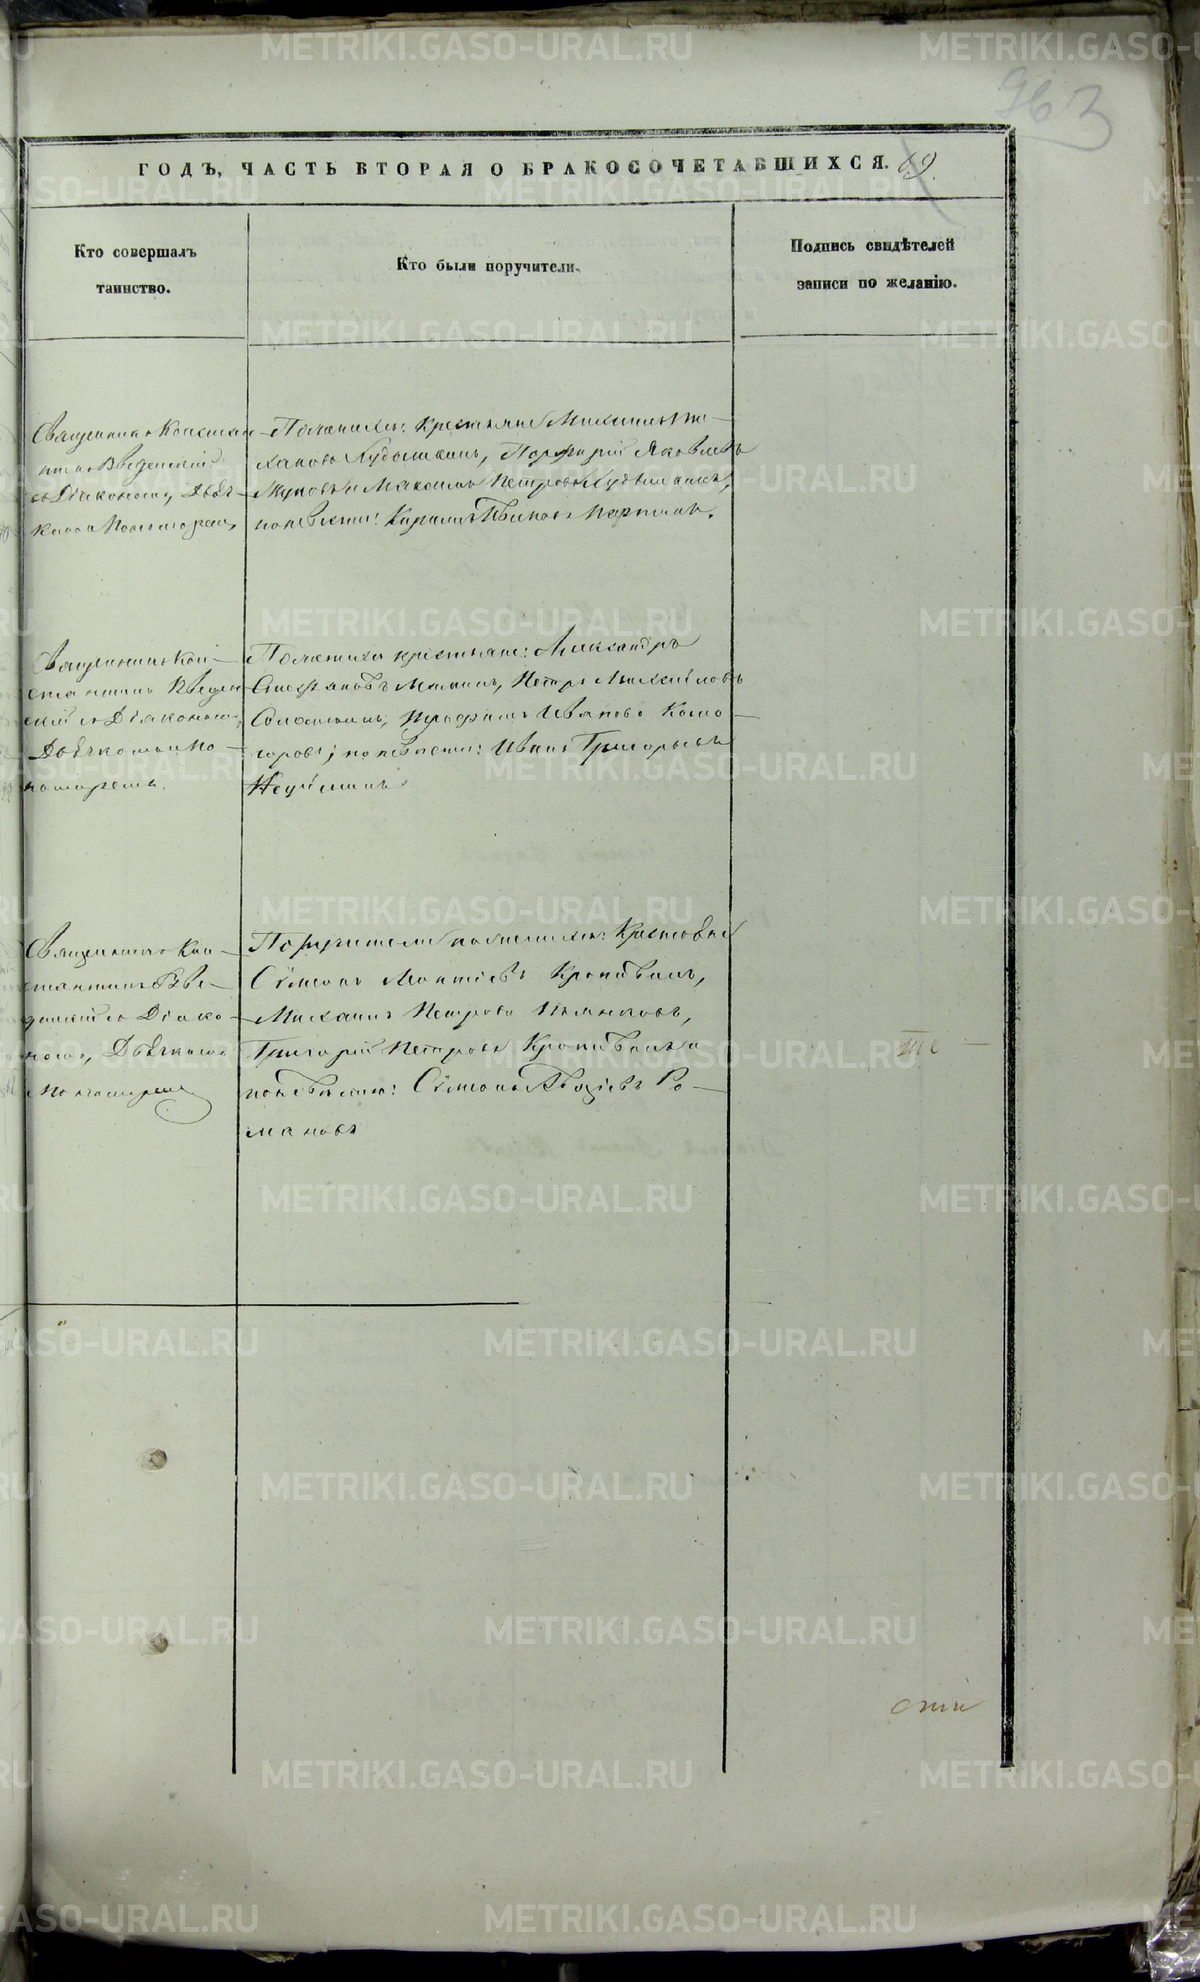 963
ГОДЪ, ЧАСТЬ ВТОРАЯ О БРАКОСОЧЕТАВШИХСЯ. 69.
Кто совершалъ
таинство.
Кто были поручители.
Подпись свидѣтелей
записи по желанію.
Священникъ Констан
тинъ Введенскій
съ Діакономъ, Дьяч-
комъ и Пономаремъ,
По женихѣ: крестьяне Михаилъ
Кудышкинъ, Порфирій Яковлевъ
и Максимъ Петровъ
по невѣстѣ: Кириллъ Ивановъ
Священникъ Кон-
стантинъ Введен
скій съ Діакономъ,
Дьячкомъ и По-
номаремъ.
По женихѣ крестьяне: Александръ
Стефановъ Маминъ, Петръ Михайловъ
Соломеинъ, Трофимъ Ивановъ Комо-
горовъ; по невѣстѣ: Иванъ Григорьевъ
Неуйминъ
Священникъ Кон-
стантинъ Вве-
денскій съ Діако-
номъ, Дьячкомъ
Пономаремъ
Поручители по женихѣ: Крестьяне
Сѵмеонъ Леонтіевъ Крохалевъ,
Михаилъ Петровъ Пьянковъ,
Григорій Петровъ
по невѣстѣ: Сѵмеонъ Авдіевъ Ро-
мановъ
METRIKI.GASO-URAL.RU